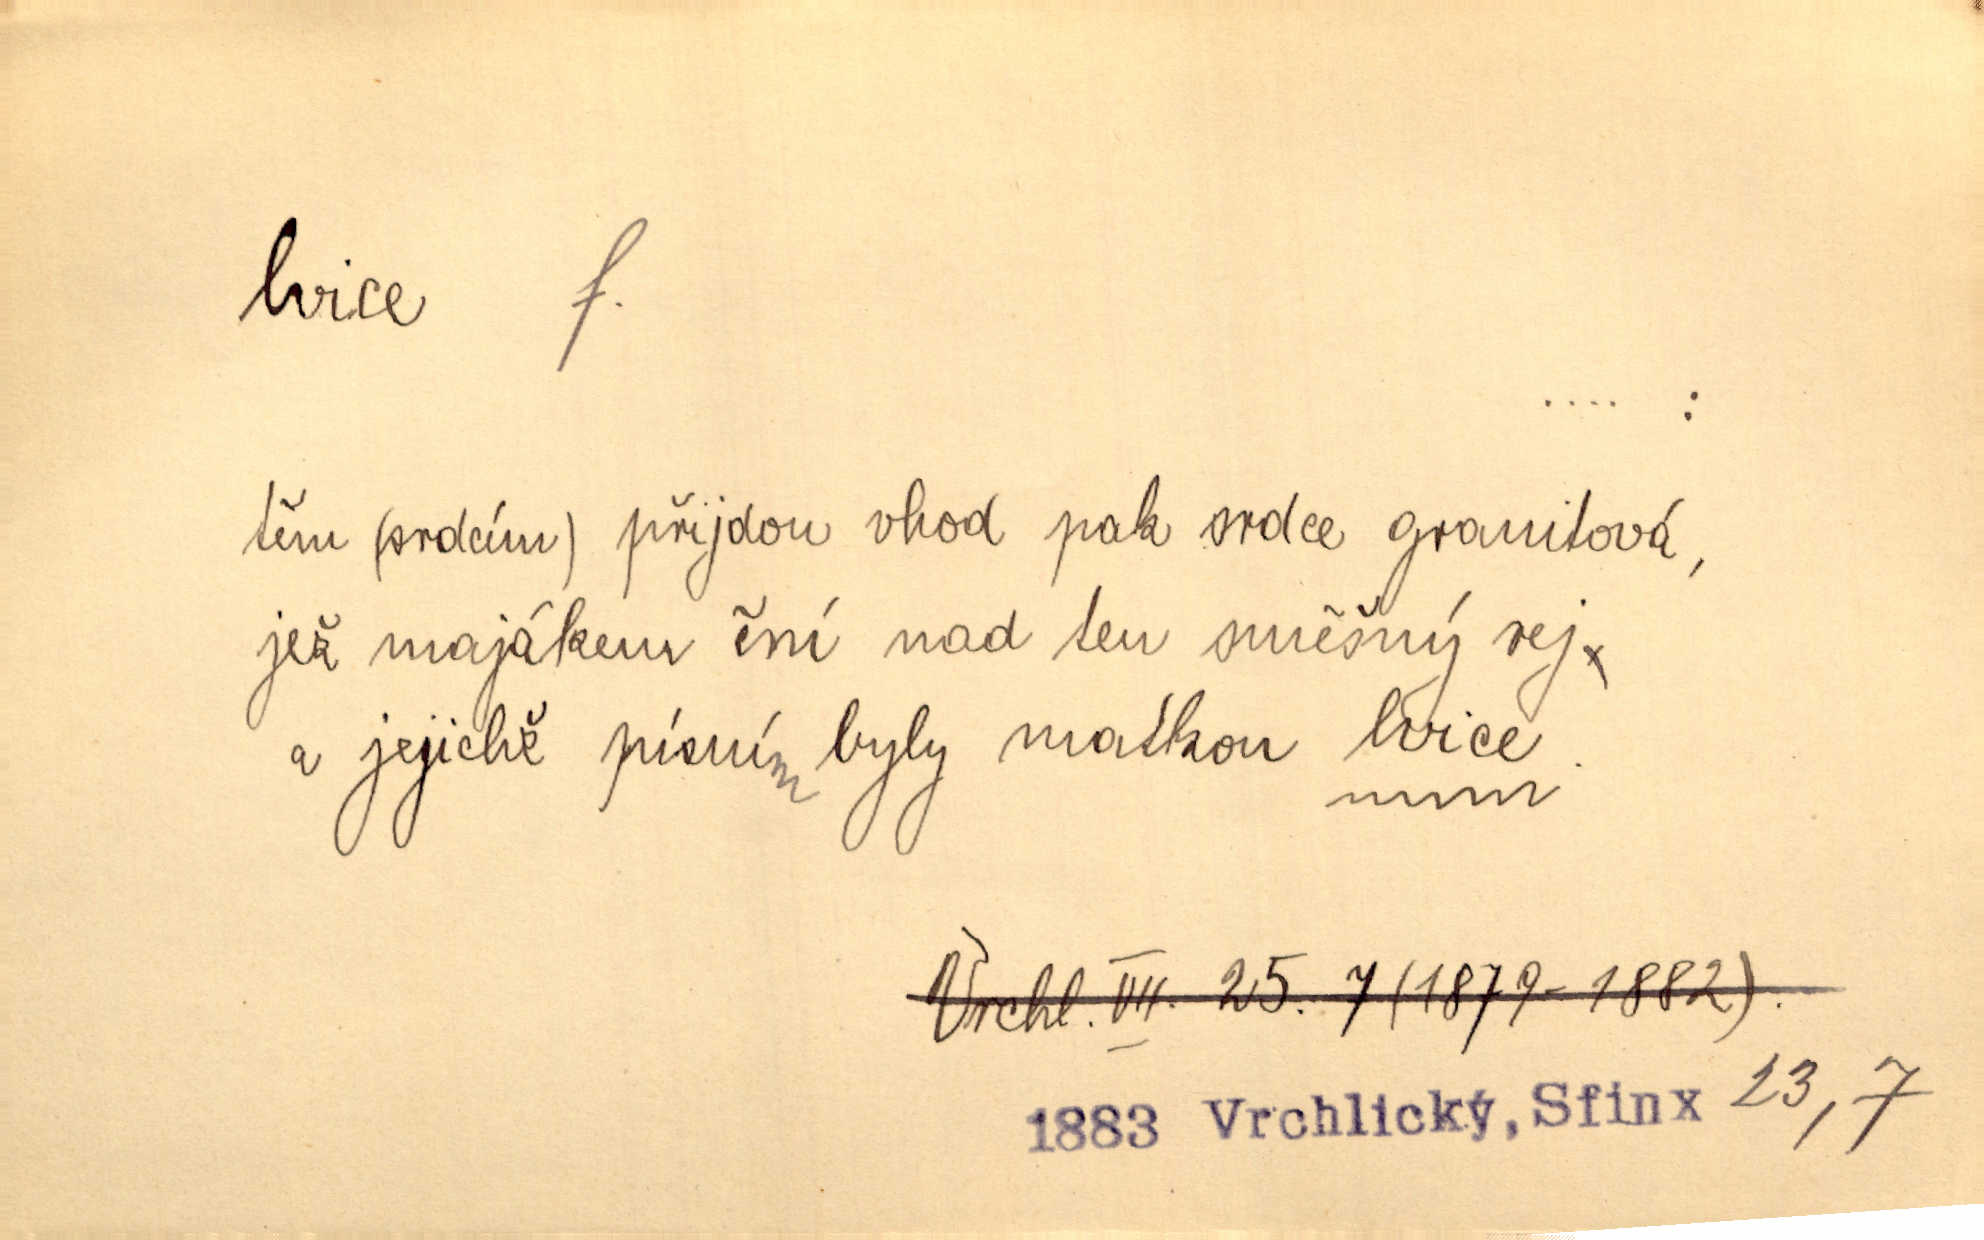 lvice f.
.... :
těm (srdcím) přijdou vhod pak srdce granitová,
jež majákem ční nad ten směšný rej
a jejichž písním byly matkou lvice.
Vrchl. VII. 25. 7 (1879-1882).
1883 Vrchlický, Sfinx 23, 7